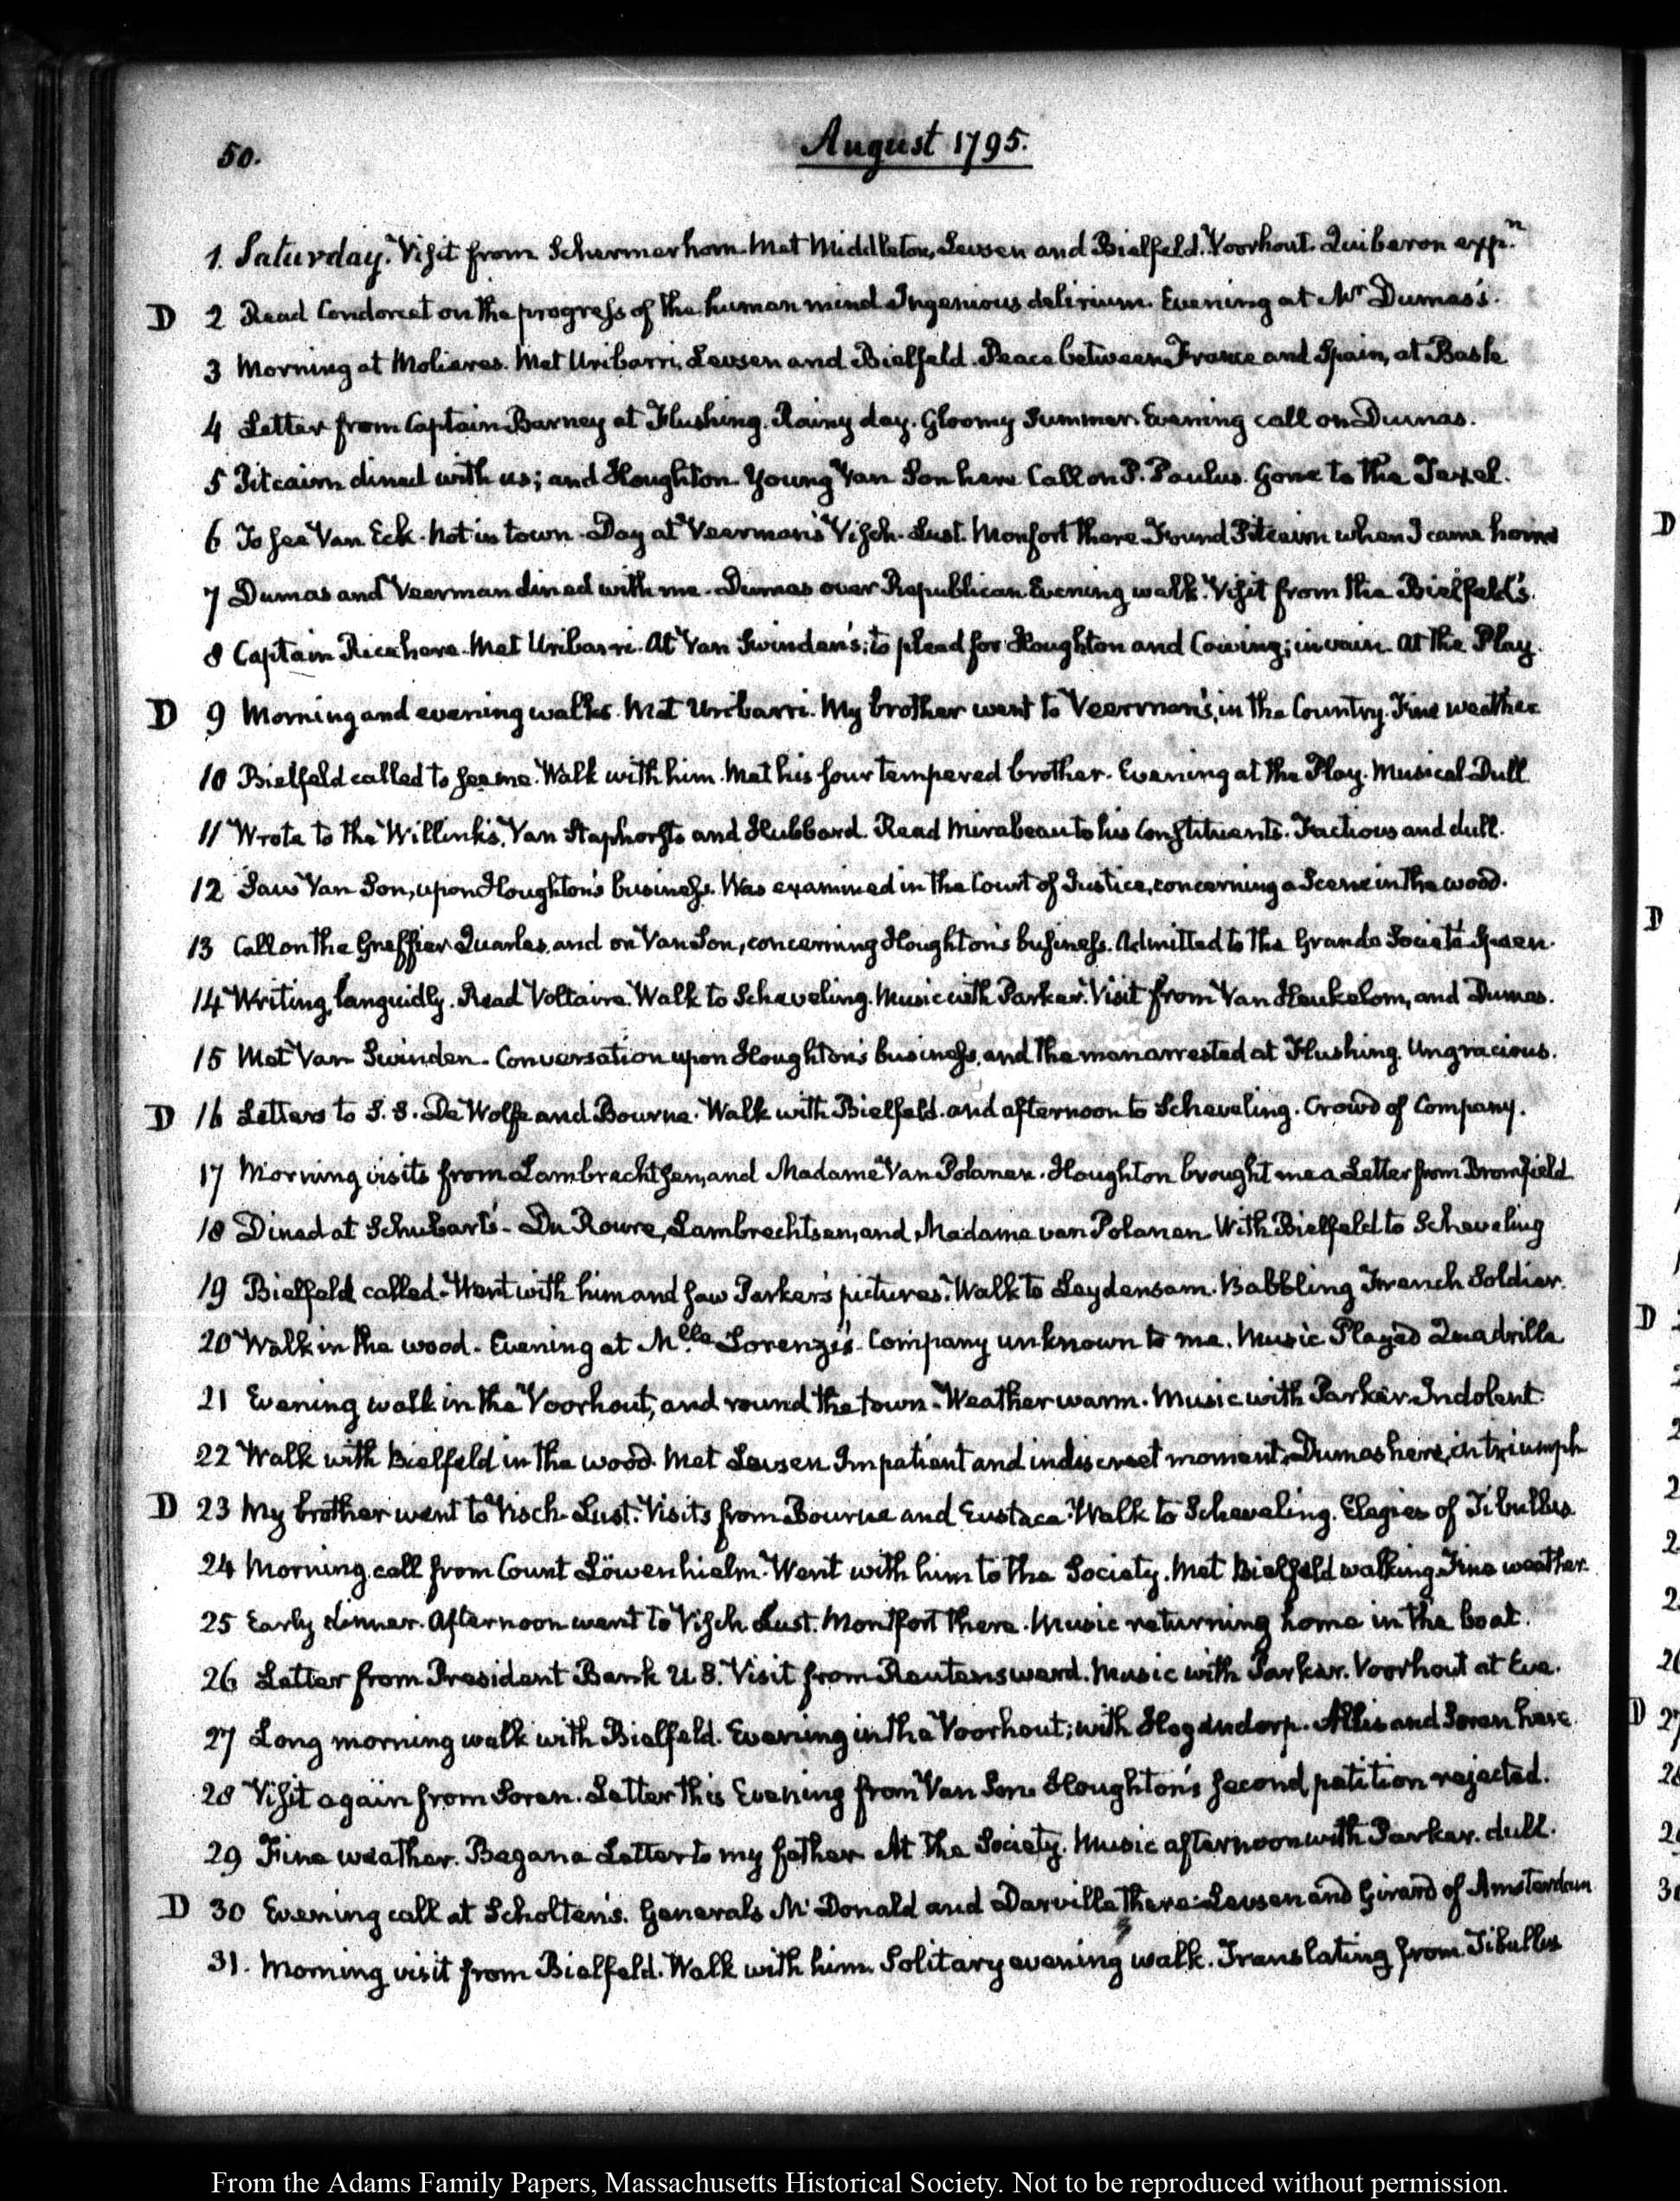 50.
August 1795.
1. Saturday. Visit from Schermerhorn. Met Middleton, Levsen and Bielfeld. Voorhout. Quiberon expn
D 2 Read Condorcet on the progress of the human mind. Ingenious delirium. Evening at Mr Dumas's.
3 Morning at Molieres. Met Uribarri, Levsen and Bielfeld. Peace between France and Spain, at Basle
4 Letter from Captain Barney at Flushing. Rainy day. Gloomy Summer. Evening call on Dumas.
5 Pitcairn dined with us; and Houghton. Young Van Son here. Call on P. Paulus. Gone to the Texel.
6 To see Van Eck. Not in town. Day at Veerman's Visch-Lust. Monfort there. Found Pitcairn when I came home
7 Dumas and Veerman dined with me. Dumas over Republican. Evening walk. Visit from the Bielfeld's.
8 Captain Rice here. Met Uribarri. At Van Swinden's; to plead for Houghton and Cowing; in vain. At the Play.
D 9 Morning and evening walks. Met Uribarri. My brother went to Veerman's, in the Country. Fine weather
10 Bielfeld called to see me. Walk with him. Met his sour tempered brother. Evening at the Play. Musical Dull
11 Wrote to the Willink's, Van Staphorsts and Hubbard. Read Mirabeau to his Constituents. Factious and dull.
12 Saw Van Son, upon Houghton's business. Was examined in the Court of Justice, concerning a Scene in the wood.
13 Call on the Greffier Quarles, and on Van Son, concerning Houghton's business. Admitted to the Grande Societé
14 Writing, languidly. Read Voltaire. Walk to Scheveling. Music with Parker. Visit from Van Heukelom, and Dumas.
15 Met Van Swinden. Conversation upon Houghton's business, and the man arrested at Flushing. Ungracious.
D 16 Letters to S. S. De Wolfe and Bourne. Walk with Bielfeld. and afternoon to Scheveling. Crowd of Company.
17 Morning visits from Lambrechtsen, and Madame Van Polanen. Houghton brought me a Letter from Bromfield
18 Dined at Schubart's. Du Roure, Lambrechtsen, and Madame van Polanen. With Bielfeld to Scheveling
19 Bielfeld called. Went with him and saw Parker's pictures. Walk to Leydensam. Babbling French Soldier.
20 Walk in the wood. Evening at Mlle Lorenzi's. Company unknown to me. Music Played Quadrille
21 Evening walk in the Voorhout, and round the town. Weather warm. Music with Parker. Indolent
22 Walk with Bielfeld in the wood. Met Levsen. Impatient and indiscreet moment. Dumas here, in triumph
D 23 My brother went to Visch-Lust. Visits from Bourne and Eustace. Walk to Scheveling. Elegies of Tibullus.
24 Morning call from Count Löwenhielm. Went with him to the Society. Met Bielfeld walking. Fine weather.
25 Early dinner. Afternoon went to Visch Lust. Montfort there. Music returning home in the boat.
26 Letter from President Bank U.S. Visit from Reutensward. Music with Parker. Voorhout at Eve.
27 Long morning walk with Bielfeld. Evening in the Voorhout; with Hogendorp. Allis and Soren here.
28 Visit again from Soren. Letter this Evening from Van Son. Houghton's second petition rejected.
29 Fine weather. Began a Letter to my father. At the Society. Music afternoon with Parker. dull.
D 30 Evening call at Scholten's. Generals McDonald and Darville there. Levsen and Girard of Amsterdam
31. Morning visit from Bielfeld. Walk with him. Solitary evening walk. Translating from Tibullus
From the Adams Family Papers, Massachusetts Historical Society. Not to be reproduced without permission.